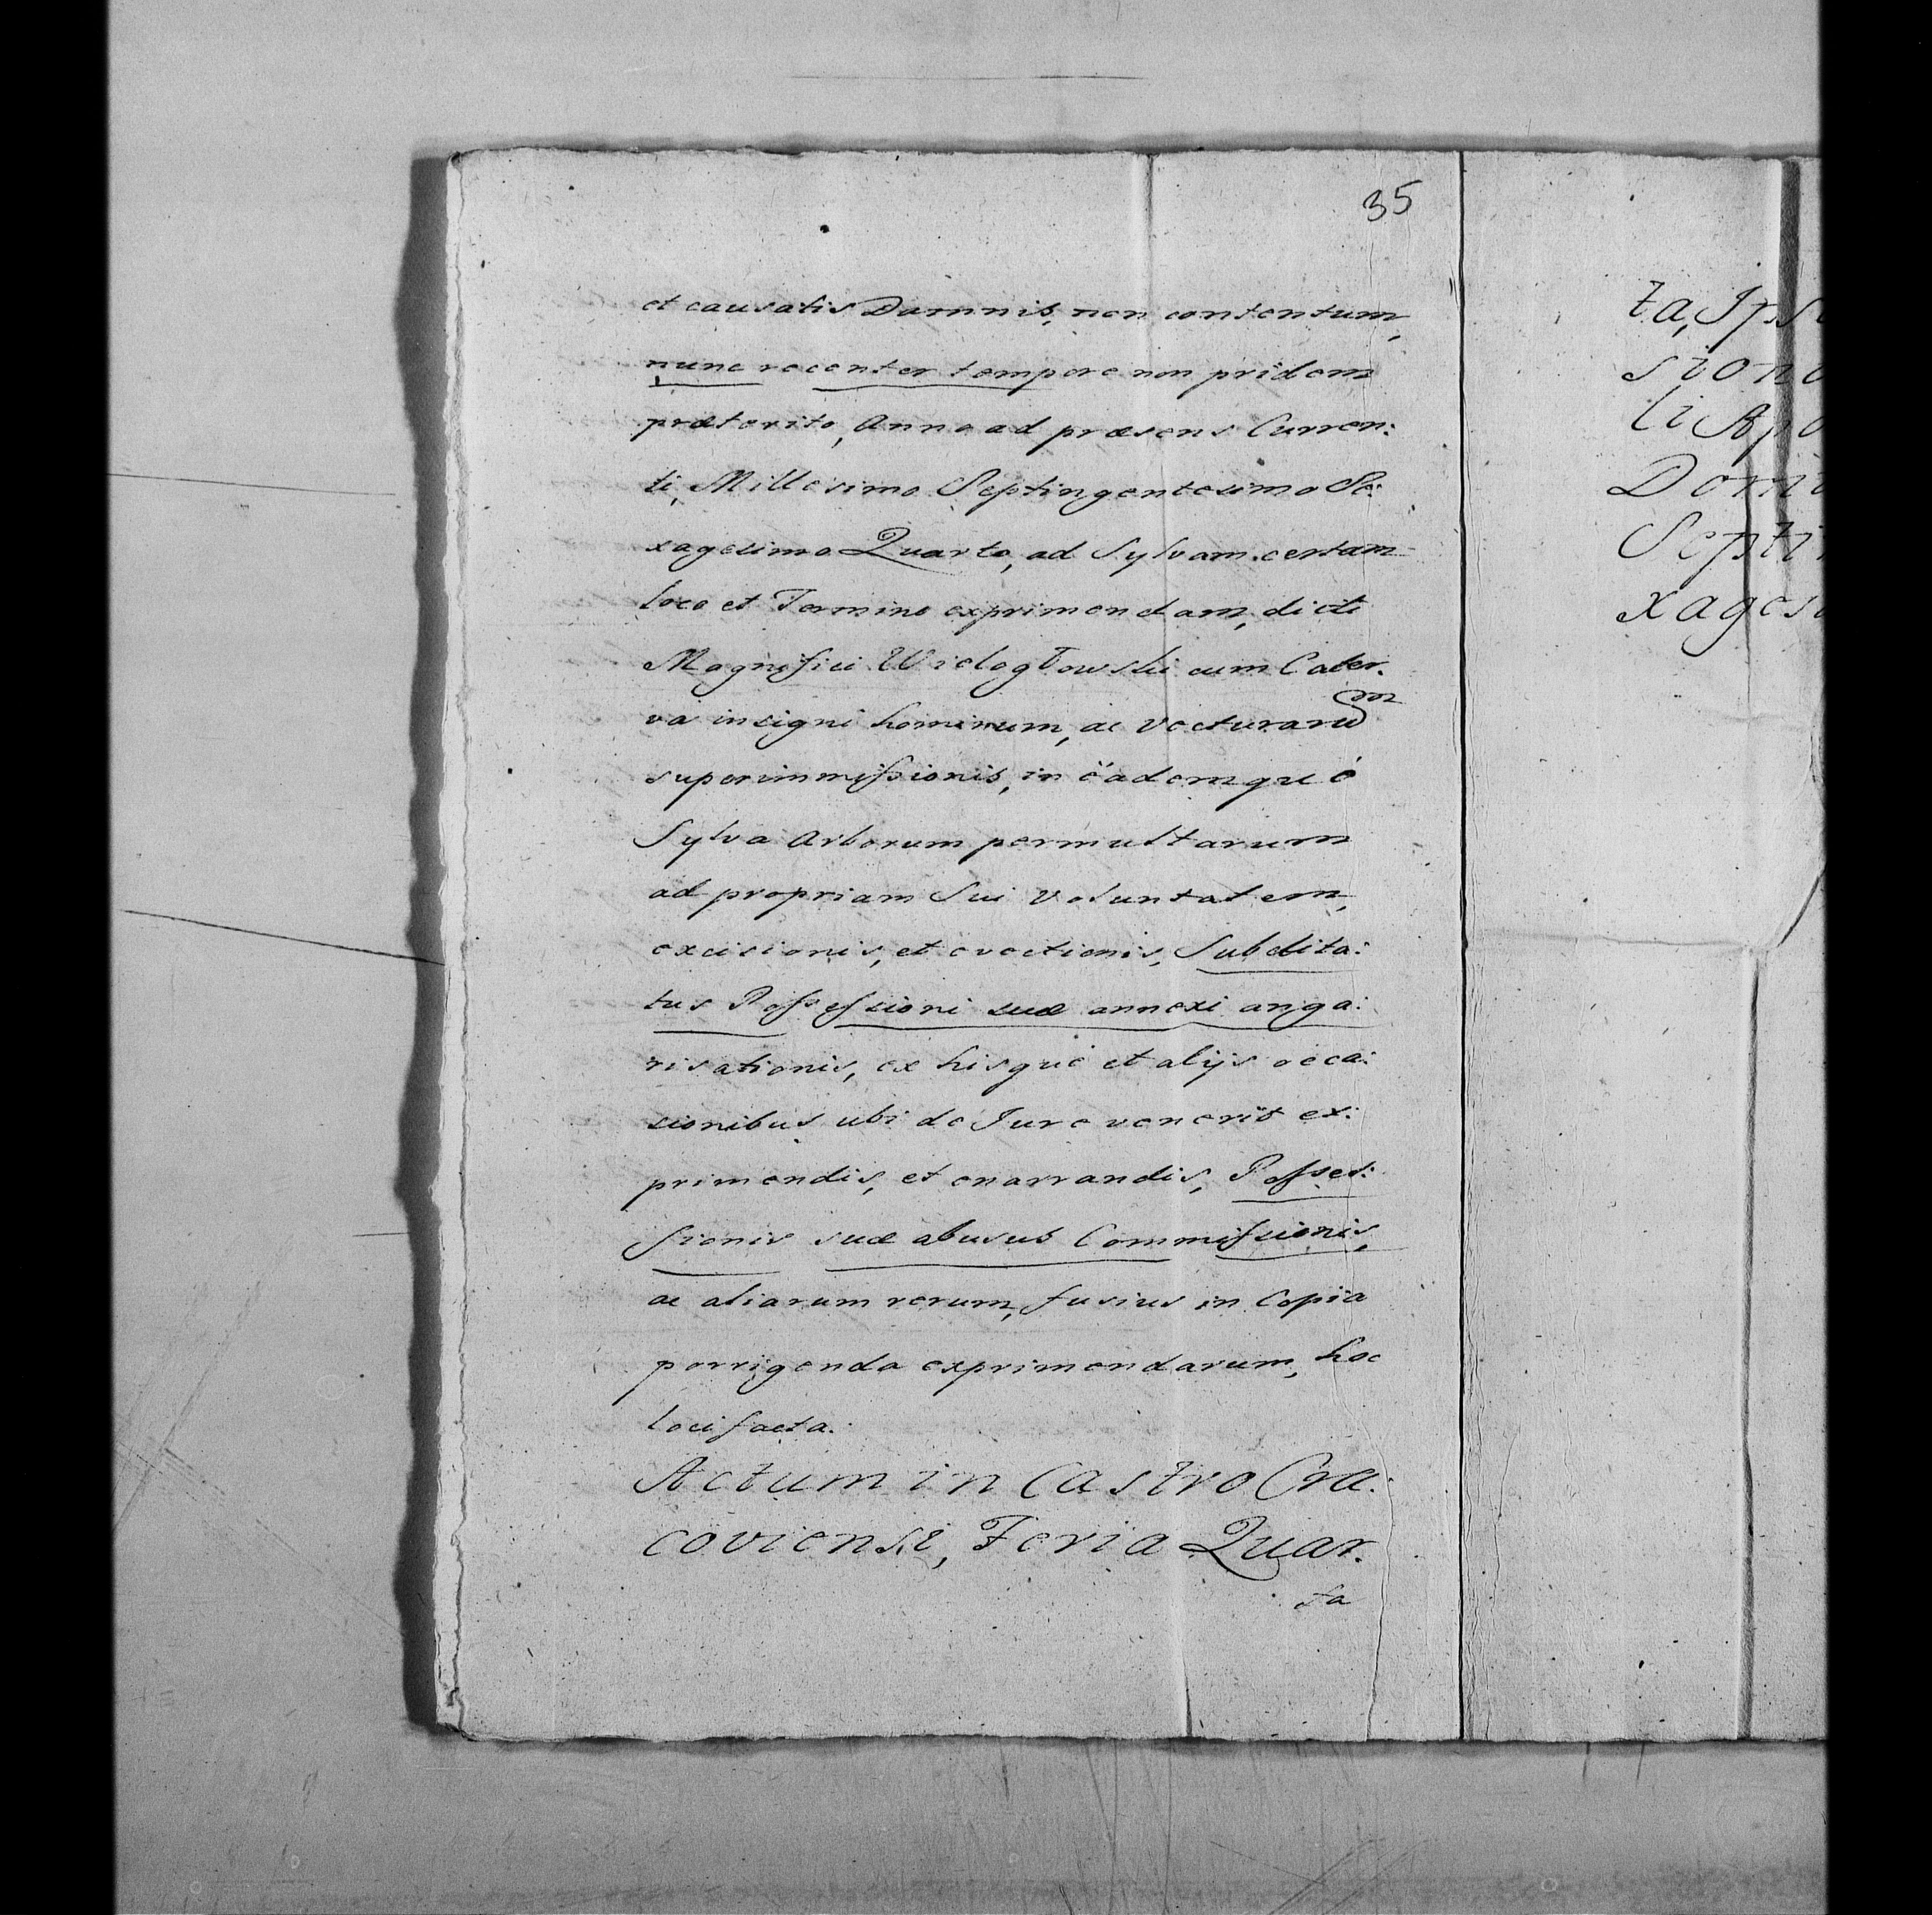 35
et causatis Damnis, non contentum,
nunc recenter tempore non pridem
præterito, Anno ad præsens Curren:
ti, Millesimo Septingentesimo Se:
xagesimo Quarto, ad Sylvam certam
loco et Termino exprimendam, dicti
Magnifici Wielogłowski cum Cater.
va insigni hominum, ac vecturarum
superimmissionis, in eademque
Sylva Arborum permultarum
ad propriam Sui Voluntatem,
excisionis, et evectionis, Subdita:
tus Possessioni suæ annexi anga:
risationis, ex hisque et alijs occa:
sionibus ubi de Jure venerit ex:
primendis, et enarrandis, Posses:
sionis suæ abusus Commissionis,
ac aliarum rerum, fusius in Copia
porrigenda exprimendarum, hoc
loci facta.
Actum in Castro Cra:
coviensi, Feria Quar.
ta
ta, Ips
sion
li Ap
Domi
Septi
xages